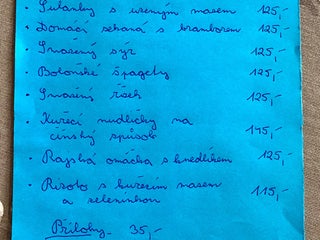 · Šulánky s uzeným masem 125,-
· Domácí sekaná s bramborem 125,-
· Smažený sýr 125,-
· Boloňské špagety 125,-
· Smažený řízek 125,-
· Kuřecí nudličky na
čínský způsob 145,-
· Rajská omáčka s knedlíkem 125,-
· Rizoto s kuřecím masem
a zeleninkou 115,-
Přílohy 35,-